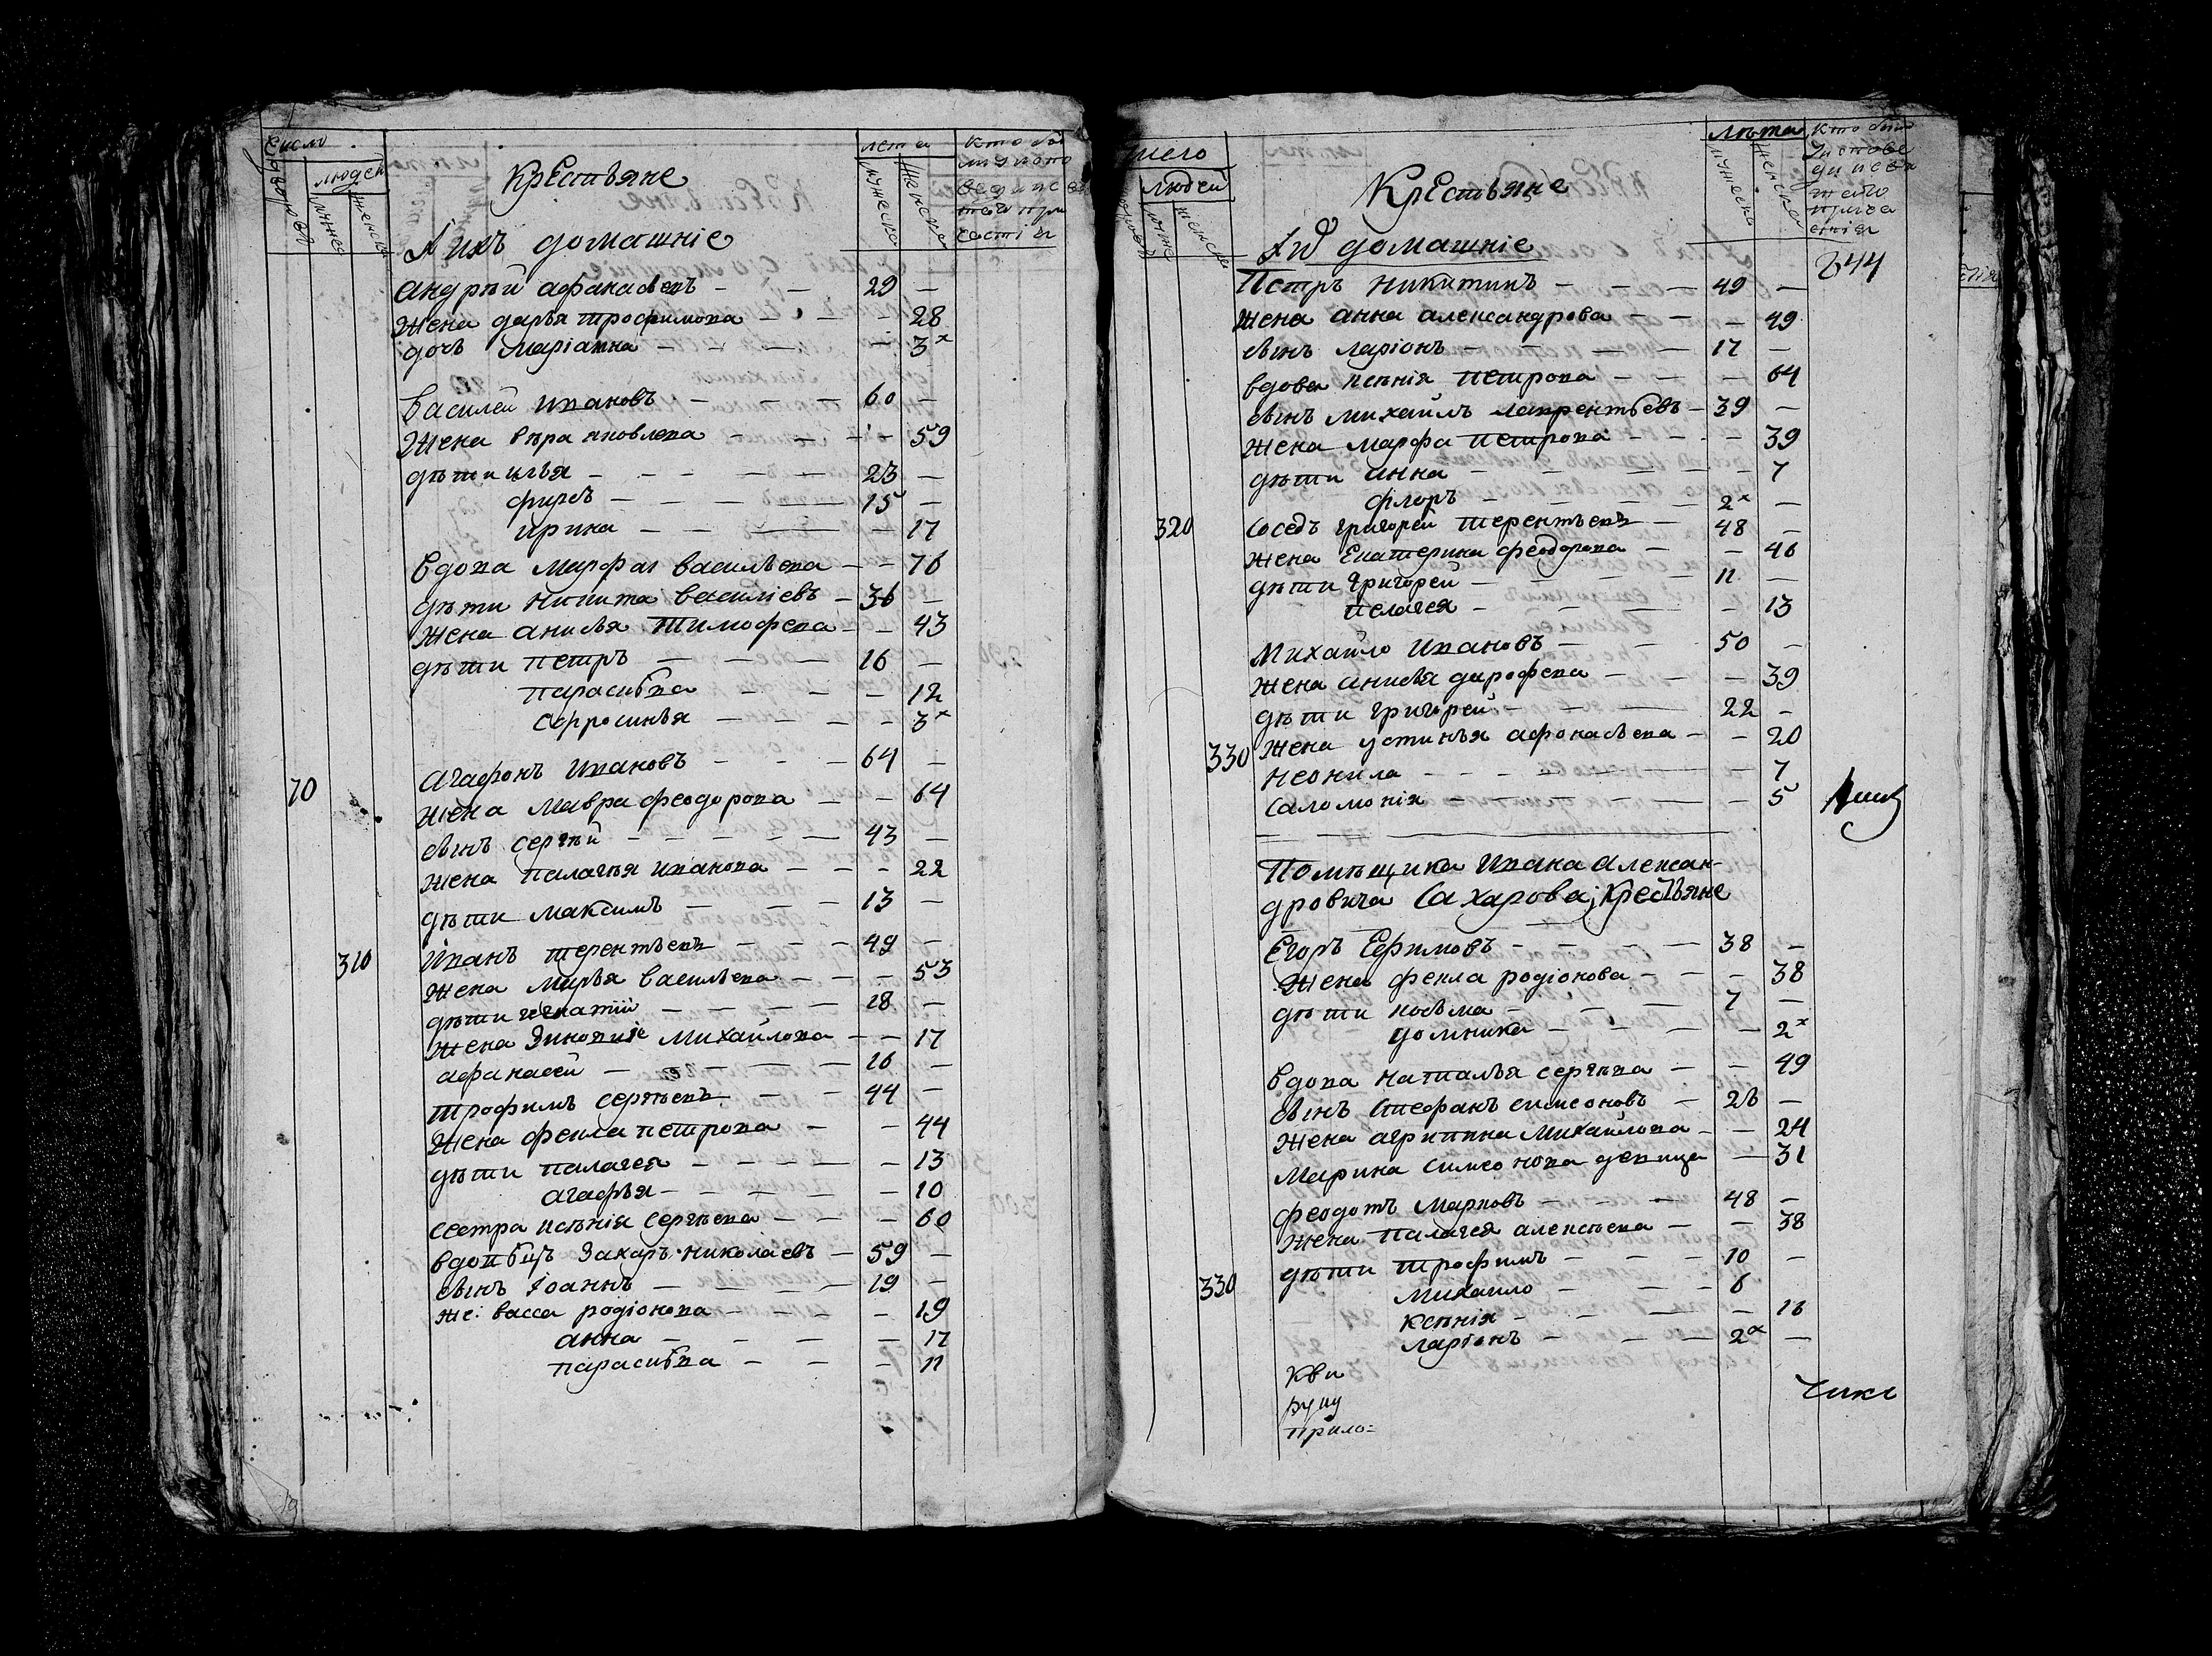 Число
дворовъ
людей
мужес
женска
Крестьяне
И ихъ домашніе
лета
мужеска
женска
Кто бы
Андрѣй Афанасьевъ - - 29 -
Жена Дарья Трофимова - - - 28
дочь Маріанна - - - - 3ˣ
Василей Ивановъ - - - 60 -
Жена Вѣра Яковлева - - - - 59
дѣти Илья - - - - 23 -
Филипъ - - - - 15 -
Ирина - - - - 17
Вдова Марфа Васильева - - 76
дѣти Никита Василіевъ - 36 -
Жена Анисья Тимофева - - 43
дѣти Петръ - - - 16 -
Парасковья - - - 12
Ефросинья - - - - 3ˣ
Агафонъ Ивановъ - - - 64 -
70
Жена Мавра Феодорова - - 64
сынъ Сергѣй - - - - 43 -
Жена Палагѣя Иванова - - - 22
дѣти Максимъ - - - 13 -
310
Иванъ Терентьевъ - - - 49 -
Жена Марья Васильева - - - 53
дѣти Игнатій - - - 18 -
Жена Зиновія Михайлова - - 17
Афанасей - - - - 16 -
Трофимъ Сергѣевъ - - 44 -
Жена Фекла Петрова - - 44
дѣти Палагея - - - - 13
Агафья - - - - 10
сестра Ксѣнія Сергѣева - - - 60
вдовецъ Захаръ Николаевъ - 59 -
сынъ Іоаннъ - - - 19 -
же: Васса Родіонова - - - - 19
Анна - - - - 17
Парасковья - - - 11
число
людей
мужс
женска
Крестьяне
домашніе
Лѣта
мужеска
женска
Кто былъ
844
Петръ Никитинъ - - - 49 -
Жена Анна Александрова - - - 49
сынъ Ларіонъ - - - - 17 -
вдова Ксѣнія Петрова - - - 64
сынъ Михайлъ Лаврентьевъ - 39 -
Жена Марфа Петрова - - - - 39
дѣти Анна - - - - - 7
Флоръ - - - - 2ˣ -
320
Соседъ Григорей Терентьевъ - 48 -
Жена Екатерина Феодорова - - 46
дѣти Григорей - - - - 11 -
Пелагея - - - - 13
Михайло Ивановъ - - 50 -
Жена Анисья Дарофева - - - 39
дѣти Григорей - - - 22 -
330
Жена Устинья Афонасьева - - 20
Неонила - - - - - - 7
Саломонія - - - - - 5
Помѣщика Ивана Алексан-
дровича Сахарова, Крестьяне
Егоръ Ефимовъ - - - - 38 -
Жена Фекла Родіонова - - - 38
дѣти Косьма - - - 7 -
Домника - - - - 2ˣ
Вдова Наталья Сергѣва - - 49
сынъ Стефанъ Симеоновъ - 26 -
Жена Агрипина Михайлова - - 24
Марина Симеонова девица - 31
Феодотъ Марковъ - - - 48 -
Жена Палагея Алексѣева - - 38
дѣти Трофимъ - - - 10 -
330
Михайло - - - 6
Ксѣнія - - - - 16
Ларіонъ - - - 2ˣ -